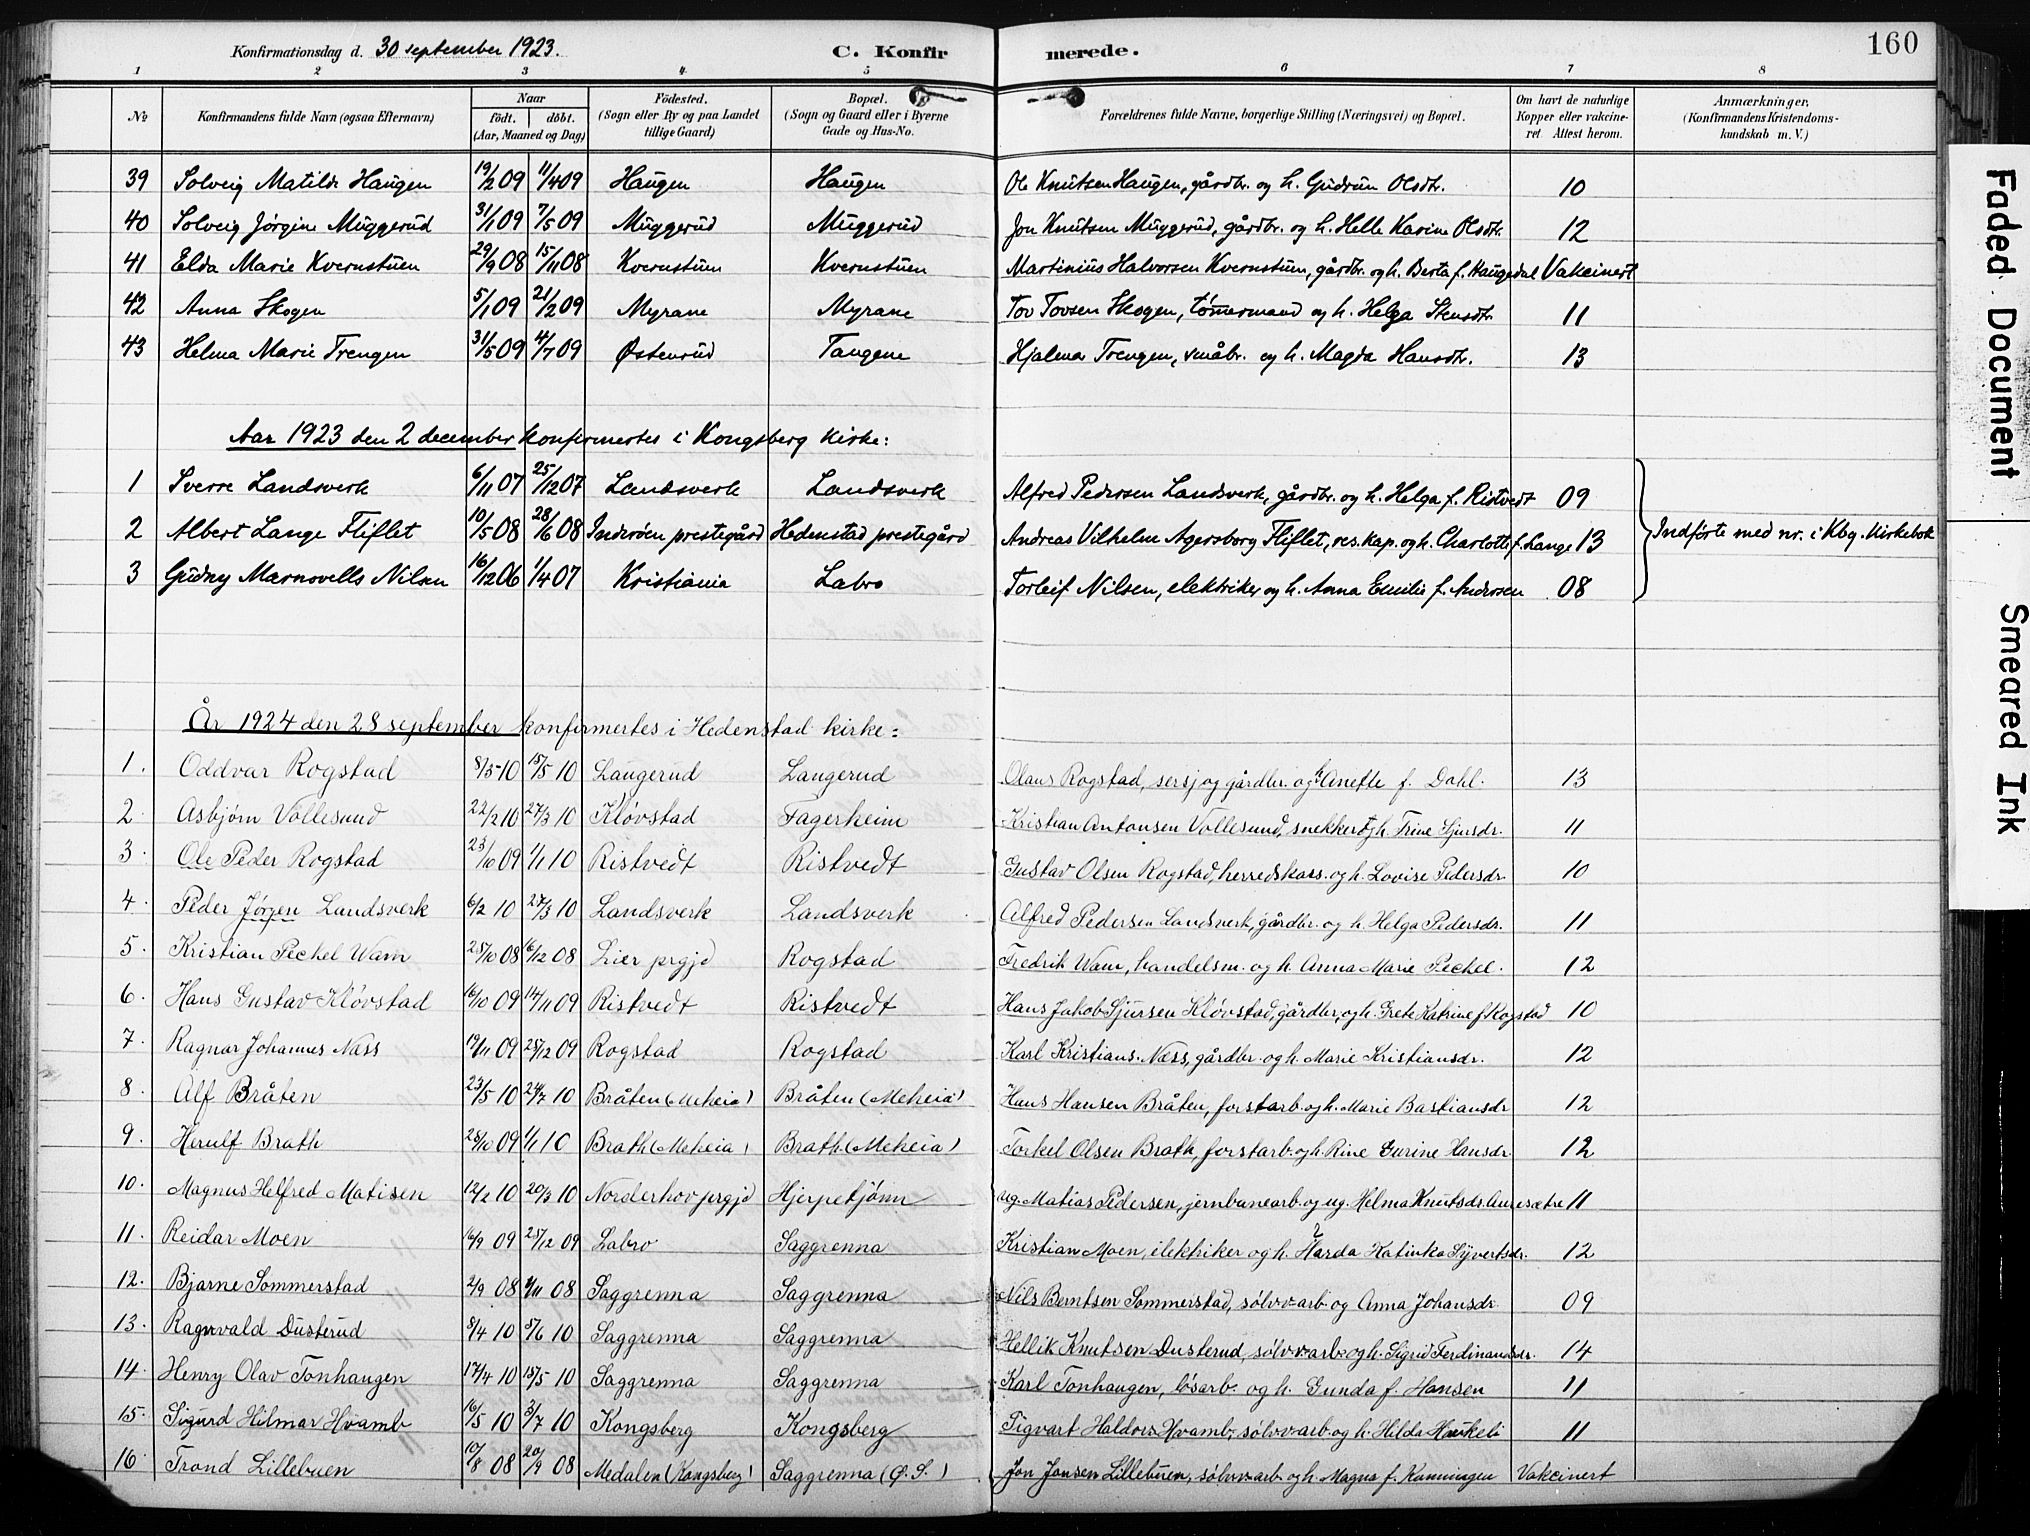 Konfirmationsdag d. 30 september 1923. C. Konfirmerede. 160
1 2 3 4 5 6 7 8
No Konfirmandens fulde Navn (ogsaa Efternavn) Naar født. døbt. (Aar, Maaned og Dag) Fødested. (Sogn eller By og paa Landet tillige Gaard) Bopæl. (Sogn og Gaard eller i Byerne Gade og Hus-No. Forældrenes fulde Navne, borgerlige Stilling (Næringsvei) og Bopæl. Om havt de naturlige Kopper eller vakcineret Attest herom. Anmærkninger. (Konfirmandens Kristendomskundskab m. V.)
39 Solveig Matilde Haugen 19/2 09 11/4 09 Haugen Haugen Ole Knutsen Haugen, gårdbr. og h. Gudrun Olsdtr. 10
40 Solveig Jørgine Muggerud 31/1 09 7/5 09 Muggerud Muggerud Jon Knutsen Muggerud, gårdbr. og h. Helle Karine Olsdtr. 12
41 Elda Marie Kvernstuen 29/9 08 15/11 08 Kvernstuen Kvernstuen Martinius Halvorsen Kvernstuen, gårdbr. og h. Berta f. Haugedal Vakcinert
42 Anna Skogen 5/1 09 21/2 09 Myrane Myrane Tov Tovsen Skogen, tømmermand og h. Helga Stensdtr. 11
43 Helma Marie Trengen 31/5 09 4/7 09 Østenrud Tangene Hjalmar Trengen, småbr. og h. Magda Hansdtr. 13
Aar 1923 den 2 december konfirmertes i Kongsberg kirke:
1 Sverre Landsverk 6/11 07 25/12 07 Landsverk Landsverk Alfred Pedersen Landsverk, gårdbr. og h. Helga f. Ristvedt 09
2 Albert Lange Fliflet 10/5 08 28/6 08 Inderøen prestegård Hedenstad prestegård Andreas Vilhelm Agersborg Fliflet, res. kap. og h. Charlotte f. Lange 13 Indførte med nr. i Kbg. Kirkebok
3 Gudny Marnovells Nilsen 16/12 06 1/4 07 Kristiania Labro Torleif Nilsen, elektriker og h. Anna Emilie f. Andersen 08
År 1924 den 28 september konfirmertes i Hedenstad kirke:
1. Oddvar Rogstad 8/3 10 15/5 10 Langerud Langerud Olaus Rogstad, sersj og gårdbr. og h. Anette f. Dahl. 13
2. Asbjørn Vollesund 22/2 10 27/3 10 Kløvstad Fagerheim Kristian Antonsen Vollesund, snekker og h. Trine Sjursdr. 11
3. Ole Peder Rogstad 23/10 09 1/1 10 Ristvedt Ristvedt Gustav Olsen Rogstad, herredskass. og h. Lovise Pedersdr. 10
4. Peder Jørgen Landsverk 6/2 10 27/3 10 Landsverk Landsverk Alfred Pedersen Landsverk, gårdbr. og h. Helga Pedersdr. 11
5. Kristian Pechel Wam 25/10 08 16/12 08 Lier prgjd Rogstad Fredrik Wam, handelsm. og h. Anna Marie Pechel. 12
6. Hans Gustav Kløvstad 16/10 09 14/11 09 Ristvedt Ristvedt Hans Jakob Sjursen Kløvstad, gårdbr. og h. Grete Katrine f. Rogstad 10
7. Ragnar Johannes Næss 19/11 09 25/12 09 Rogstad Rogstad Karl Kristians. Næss, gårdbr. og h. Marie Kristiansdr. 12
8. Alf Bråten 23/5 10 24/7 10 Bråten (Meheia) Bråten (Meheia) Hans Hansen Bråten, forstarb. og h. Marie Bastiansdr 12
9. Herulf Brath 25/10 09 1/1 10 Brath (Meheia) Brath (Meheia) Torkel Olsen Brath, forstarb. og h. Rine Gurine Hansdr. 12
10. Magnus Helfred Matisen 12/2 10 20/3 10 Norderhov prgjd Hjerpetjønn ug. Matias Pedersen, jernbanearb. og ug. Helma Knutsdr. 11
11. Reidar Moen 16/9 09 25/12 09 Labro Saggrenna Kristian Moen, elektriker og h. Harda Katinka Syvertsdr. 12
12. Bjarne Sommerstad 2/9 08 1/11 08 Saggrenna Saggrenna Nils Berntsen Sommerstad, sølvv.arb. og Anna Johansdr. 09
13. Ragnvald Dusterud 8/4 10 5/6 10 Saggrenna Saggrenna Hellik Knutsen Dusterud, sølvv.arb. og h. Sigrid Ferdinandsdr. 14
14. Henry Olav Tonhaugen 17/4 10 15/5 10 Saggrenna Saggrenna Karl Tonhaugen, løsarb. og h. Gunda f. Hansen 11
15. Sigurd Hilmar Hvamb 16/5 10 3/7 10 Kongsberg Kongsberg Sigvart Haldors. Hvamb, sølvv.arb. og h. Hilda Haukeli 11
16 Trond Lillebuen 10/8 08 20/9 08 Medalen (Kongsberg) Saggrenna (Ø. S.) Jon Jonsen Lillebuen, sølvv.arb. og h. Magna f. Kanningen Vakcinert
Faded Document
Smeared Ink